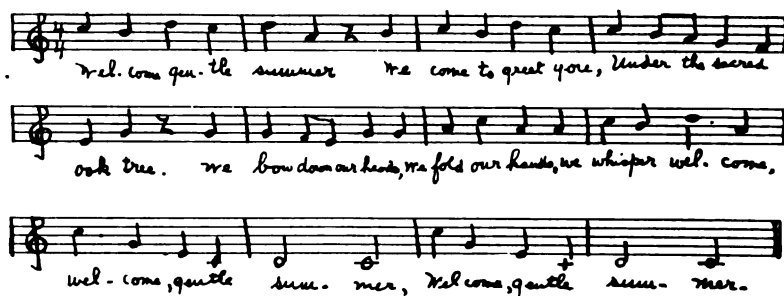 Wel-come gen-tle summer We come to greet you, Under the sacred
oak tree. We bow down our heads, we fold our hands, we whisper wel-come,
wel-come, gentle sum-mer, Welcome, gentle sum-mer.